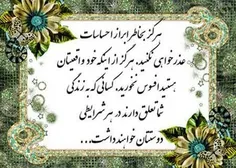 هرگز بخاطر ابراز احساسات
عذرخواهی نکنید. هرگز از اینکه خود واقعیتان
هستید افسوس نخورید، کسانی که به زندگی
شما تعلق دارند در هر شرایطی
دوستتان خواهند داشت...